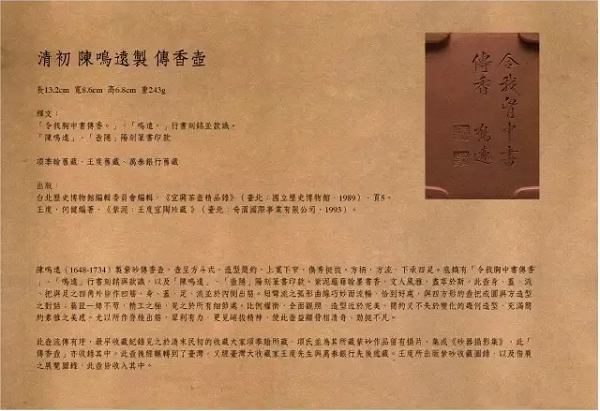 清初 陳鳴遠製 傳香壺
長13.2cm 寬8.6cm 高6.8cm 重243g
釋文：
「令我胸中書傳香。」、「鳴遠。」行書刻銘並款識。
「陳鳴遠」、「壺隱」陽刻篆書印款
項季翰舊藏、王度舊藏、萬泰銀行舊藏
出版：
台北歷史博物館編輯委員會編輯，《宜興茶壺精品錄》（臺北：國立歷史博物館，1989），頁5。
王度、何健編著，《紫泥：王度宜陶珍藏 》（臺北：奇源國際事業有限公司，1993）。
令我胸中書
傳香 鳴遠
陳鳴遠（1648-1734）製紫砂傳香壺，壺呈方斗式，造型簡約，上寬下窄，俊秀挺拔。方柄，方流，下承四足。底鐫有「令我胸中書傳香
」、「鳴遠」行書刻銘與款識，以及「陳鳴遠」、「壺隱」陽刻篆書印款。紫泥蘊藉翰墨書香，文人風雅，盡萃於斯。此壺身、蓋、流
、把與足之四角外皆作凹
之對話；藝匠一絲不苟，精工之極，見之於所有細節處。比例權衡，全面觀照，造型近於完美。簡約又不失於變化的幾何造型，充滿簡
約素雅之美感，尤以所作脊棱出筋，犀利有力，更見峭拔精神，使此壺益顯骨相清奇，勁挺不凡。
此壺流傳有序，最早收藏紀錄見之於清末民初的收藏大家項季翰所藏。項氏並為其所藏紫砂作品留有攝片，集成《砂器攝影集》，此「
傳香壺」亦收錄其中。此壺後經輾轉到了臺灣，又經臺灣大收藏家王度先生與萬泰銀行先後遞藏。王度所出版紫砂收藏圖錄，以及借展
之展覽圖錄，此壺皆收入其中。